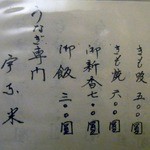 きも吸 五〇〇圓
きも焼 六〇〇圓
御新香 七〇〇圓
御飯 三〇〇圓
うなぎ専門